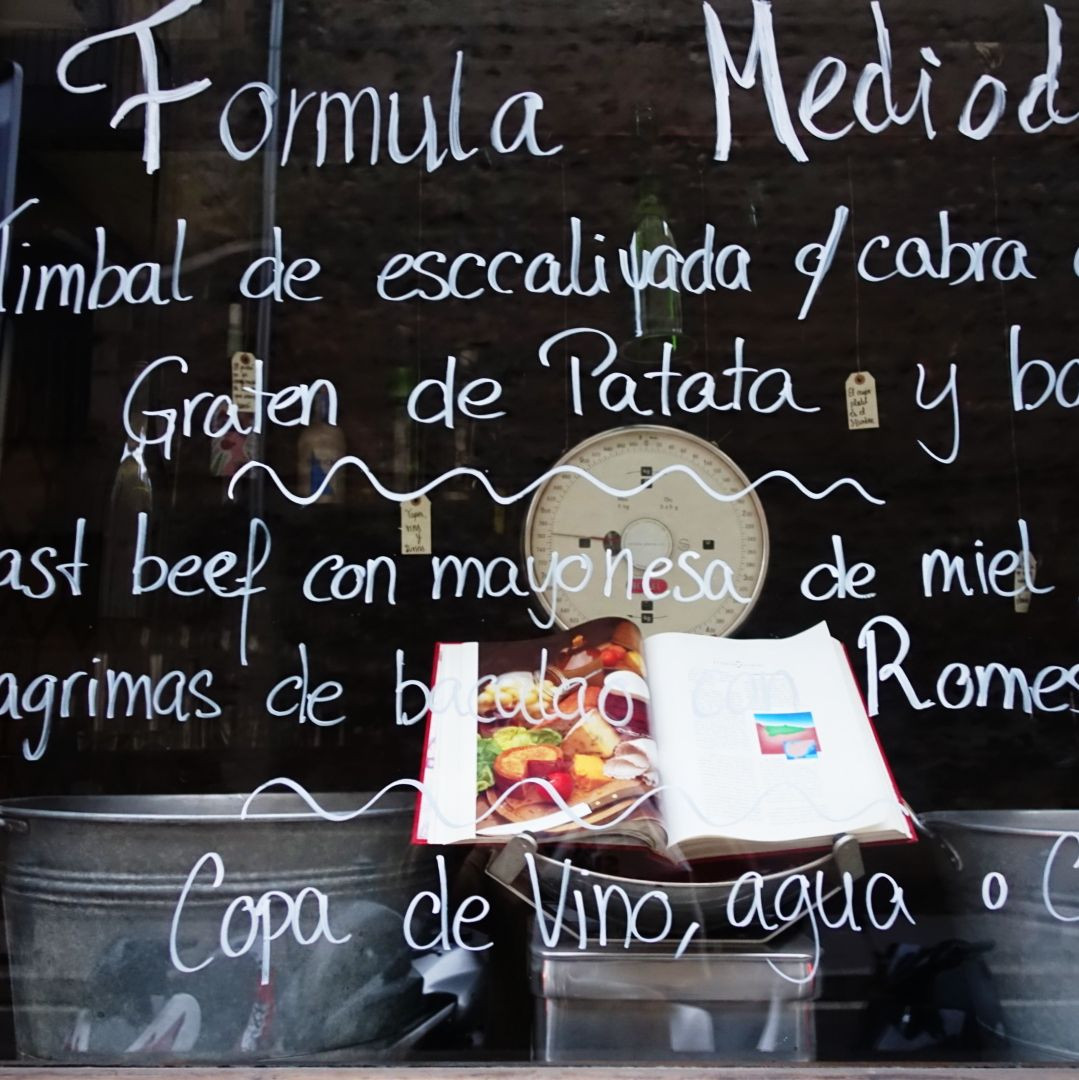 Formula Mediod
Timbal de esccalivada c/cabra
Graten de Patata y ba
ast beef con mayonesa de miel
agrimas de bacalao con Romes
Copa de Vino, agua o C